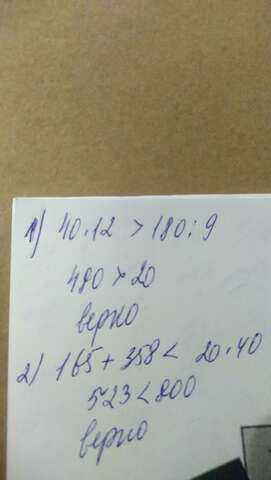 1) 40·12 > 180:9
480 > 20
верно
2) 165 + 358 < 20·40
523 < 800
верно